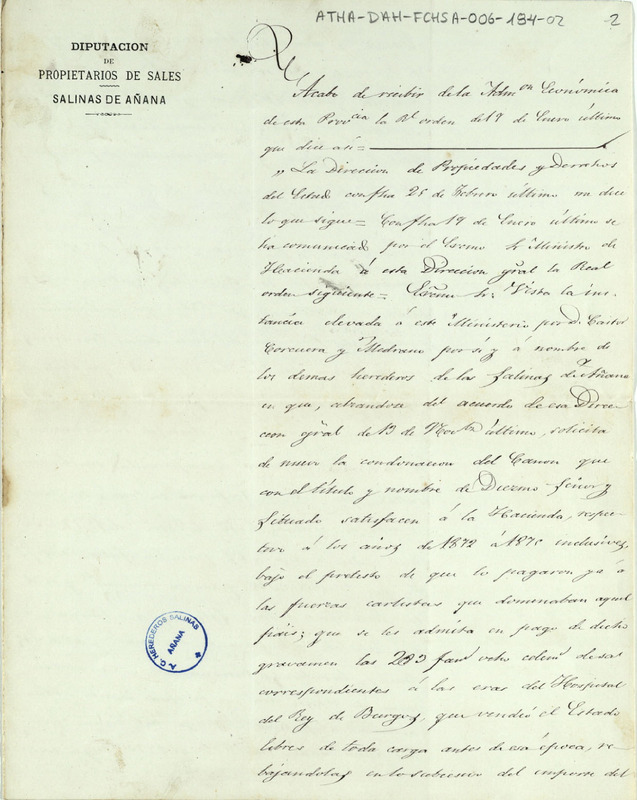 ATHA-DAH-FCHSA-006-194-02
2
DIPUTACION
DE
PROPIETARIOS DE SALES
SALINAS DE AÑANA
Acabo de recibir de la Admon Económica
de esta Provcia la Rl orden de 19 de Enero último
que dice asi=
"La Direccion de Propiedades y Derechos
del Estado con fha 25 de Febrero último me dice
lo que sigue= Con fha 19 de Enero último se
ha comunicado por el Excmo Sr Ministro de
Hacienda á esta Direccion gral la Real
orden siguiente= Excmo Sr: Vista la ins-
tancia elevada á este Ministerio por D. Castor
Corcuera y Medrano por sí y á nombre de
los demas herederos de las Salinas de Añana
en que, alzandose del acuerdo de esa Direc
cion gral de 13 de último, solicita
de nuevo la condonacion del Canon que
con el título y nombre de Diezmo Señor y
Situado satisfacen á la Hacienda, respec-
tivo á los años de 1872 á 1875 inclusives,
bajo el pretesto de que lo pagaron ya á
las fuerzas carlistas que dominaban aquel
país; que se les admita en pago de dicho
gravamen las 293 fans ocho celems de sal
correspondientes á las eras del Hospital
del Rey de Burgos, que vendió el Estado
libres de toda carga antes de esa época, re-
bajandolas en lo subcesivo del importe del
A. C. HEREDEROS SALINAS
AÑANA